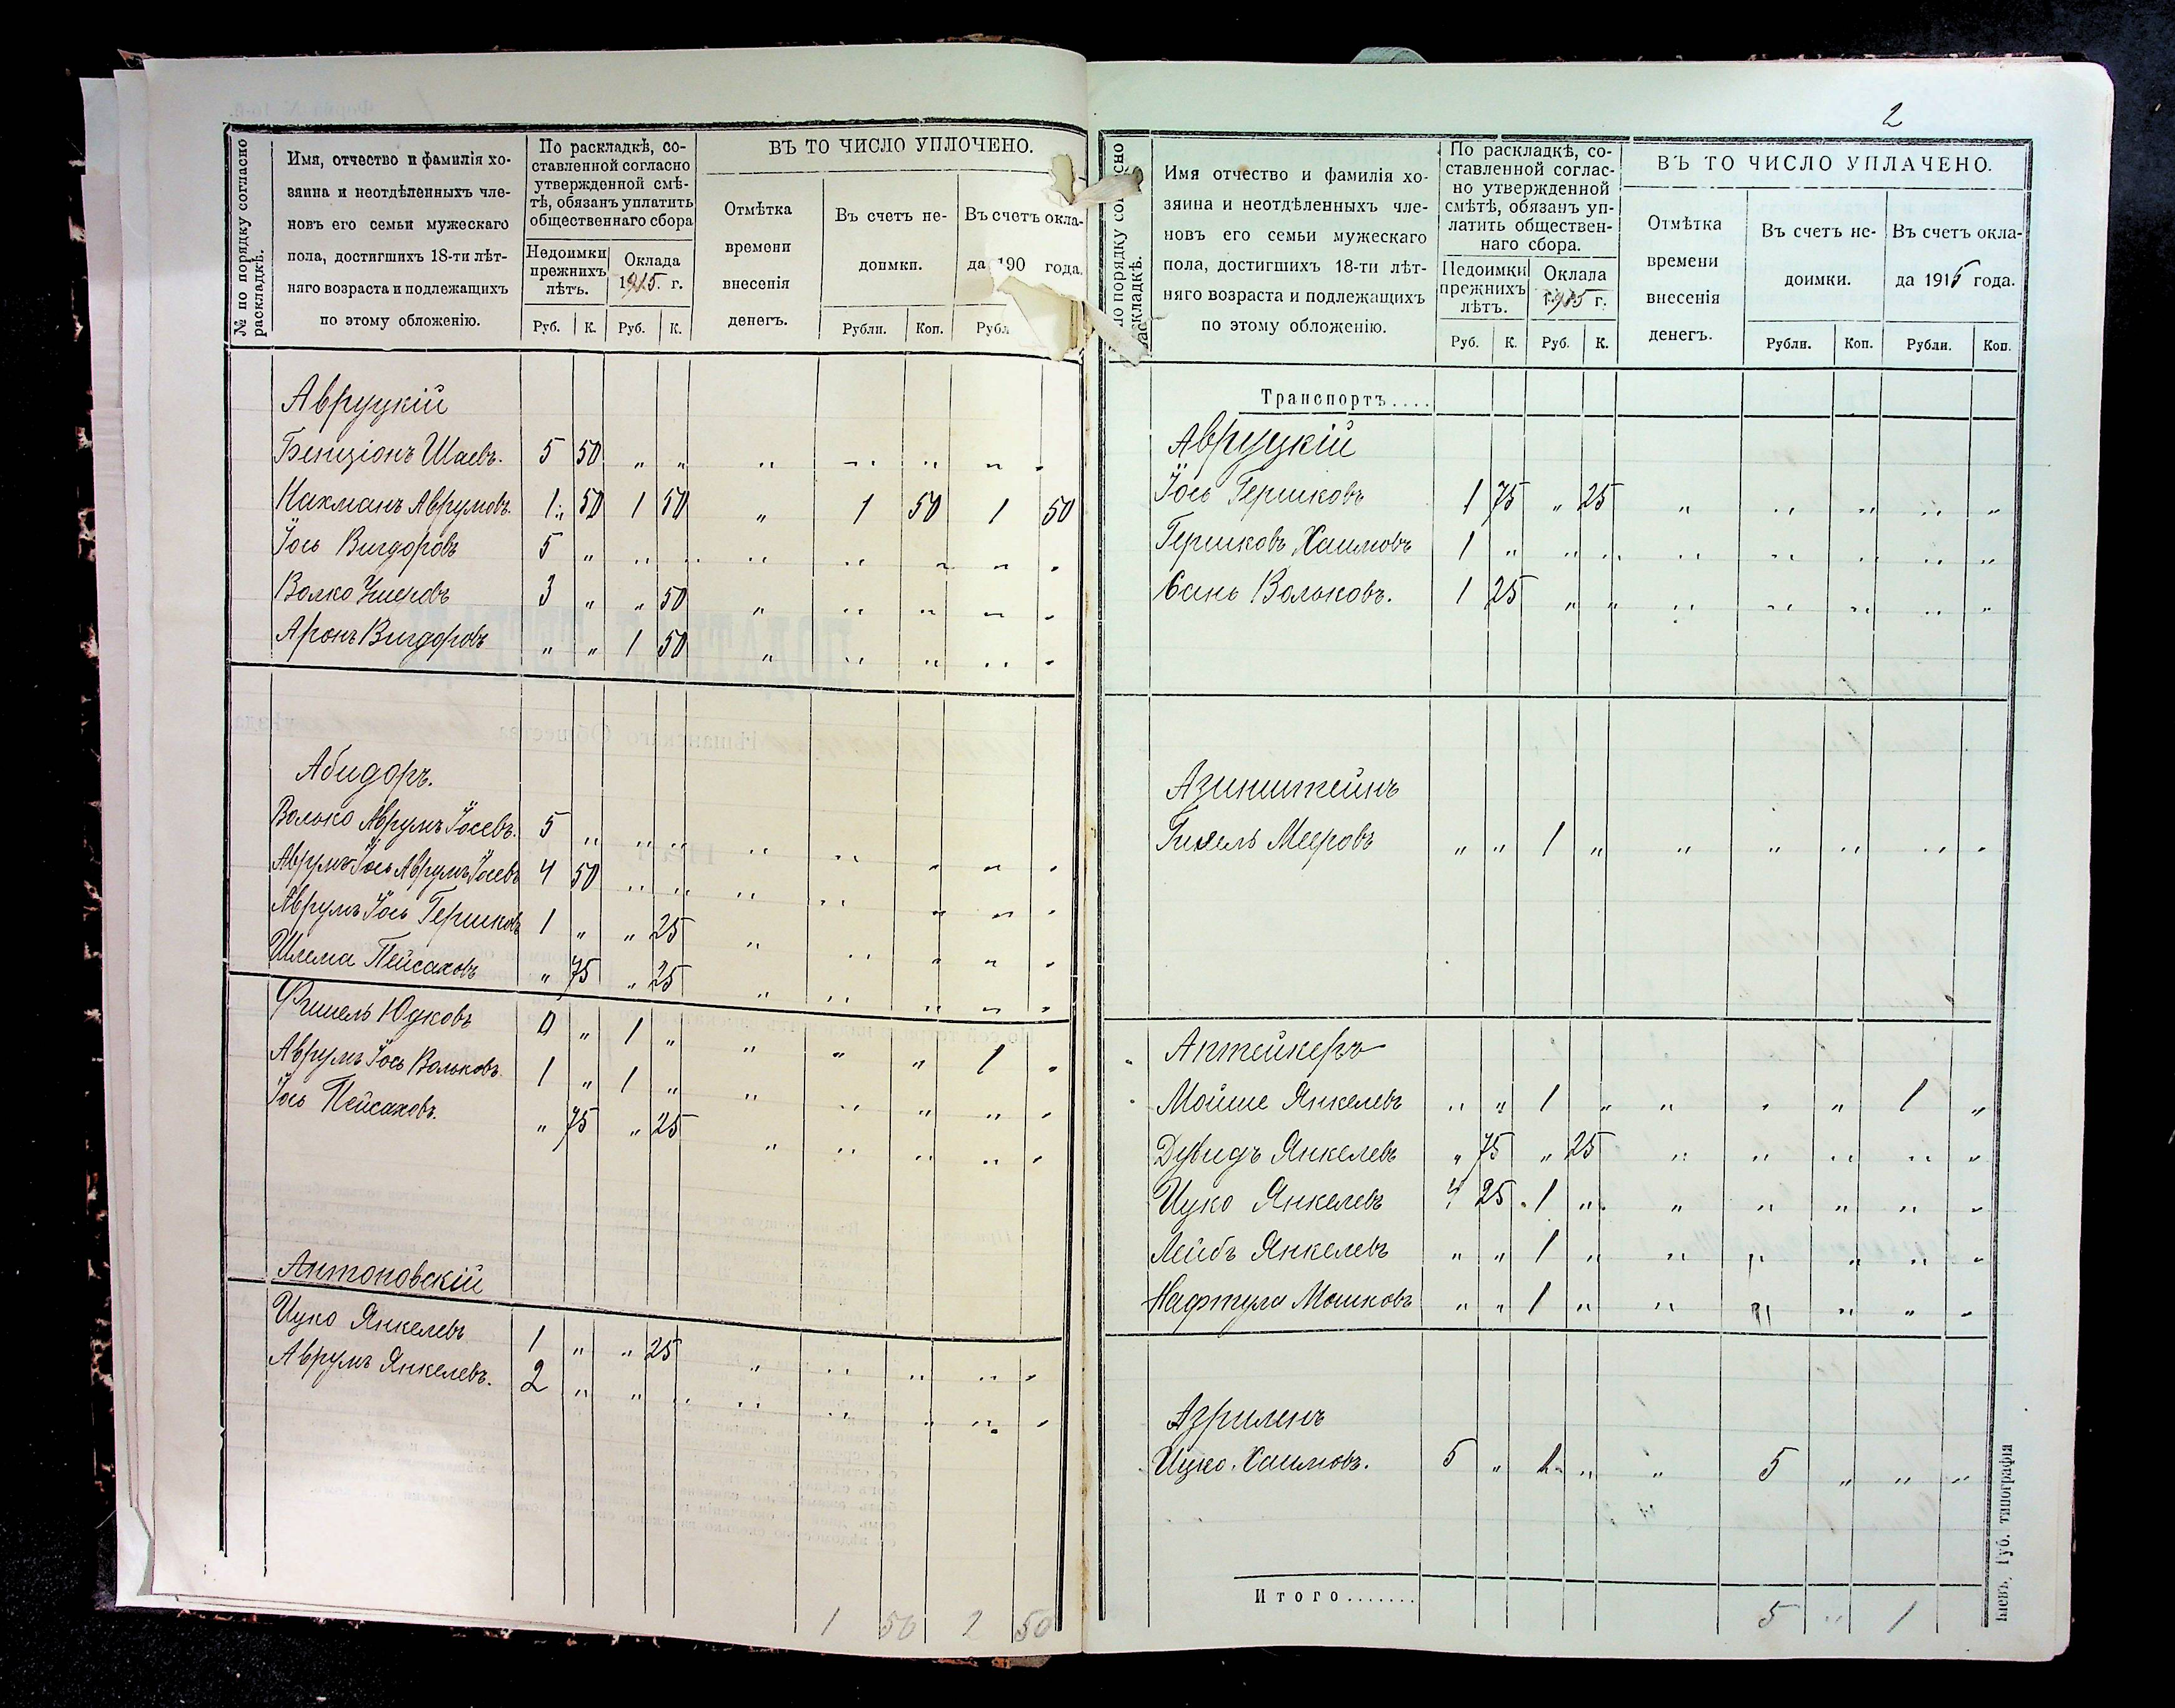 № по порядку согласно раскладкѣ.
Имя, отчество и фамилія хо-
зяина и неотдѣленныхъ чле-
новъ его семьи мужескаго
пола, достигшихъ 18-ти лѣт-
няго возраста и подлежащихъ
по этому обложенію.
По раскладкѣ, со-
ставленной согласно
утвержденной смѣ-
тѣ, обязанъ уплатить
общественнаго сбора
Недоимки прежнихъ лѣтъ.
Оклада 1915. г.
Руб. К. Руб. К.
ВЪ ТО ЧИСЛО УПЛОЧЕНО.
Отмѣтка
времени
внесенія
денегъ.
Въ счетъ не-
доимки.
Въ счетъ окла-
да 190 года.
Рубли. Коп. Рубл
Авруцкій
Бенціонъ Шаевъ. 5 50 " " " " " " "
Нахманъ Аврумовъ. 1 50 1 50 " 1 50 1 50
Іось Вигдоровъ 5 " " " " " " " "
Волко Ушеровъ 3 " " 50 " " " " "
Аронъ Вигдоровъ " " 1 50 " " " " "
Абидоръ.
Волько Аврумъ Іосевъ. 5 " " " " " " " "
Аврумъ Іось Аврумъ Іосевъ 4 50 " " " " " " "
Аврумъ Іось Гершковъ 1 " " 25 " " " " "
Шлема Пейсаховъ " 75 " 25 " " " " "
Фишель Юдковъ 0 " 1 " " " " 1 "
Аврумъ Іось Вольковъ. 1 " 1 " " " " " "
Іось Пейсаховъ. " 75 " 25 " " " " "
Антоновскій
Ицко Янкелевъ 1 " " 25 " " " " "
Аврумъ Янкелевъ. 2 " " " " " " " "
1 50 2 50
2
Имя отчество и фамилія хо-
зяина и неотдѣленныхъ чле-
новъ его семьи мужескаго
пола, достигшихъ 18-ти лѣт-
няго возраста и подлежащихъ
по этому обложенію.
По раскладкѣ, со-
ставленной соглас-
но утвержденной
смѣтѣ, обязанъ уп-
латить обществен-
наго сбора.
Недоимки прежнихъ лѣтъ.
Оклада 1915 г.
Руб. К. Руб. К.
ВЪ ТО ЧИСЛО УПЛАЧЕНО.
Отмѣтка
времени
внесенія
денегъ.
Въ счетъ не-
доимки.
Въ счетъ окла-
да 1915 года.
Рубли. Коп. Рубли. Коп.
Транспортъ....
Авруцкій
Іось Гершковъ 1 75 " 25 " " " " "
Гершковъ Хаимовъ 1 " " " " " " " "
Сань Вольковъ. 1 25 " " " " " " "
Азинштейнъ
Гихель Мееровъ " " 1 " " " " " "
Аптейкеръ
Мойше Янкелевъ " " 1 " " " " 1 "
Дувидъ Янкелевъ " 75 " 25 " " " " "
Ицко Янкелевъ 4 25 1 " " " " " "
Лейбъ Янкелевъ " " 1 " " " " " "
Нафтула Мошковъ " " 1 " " " " " "
Азриленъ
Ицко Хаимовъ. 5 " 1 " " 5 " " "
Итого.......
5 " 1
Кіевъ, Губ. типографія